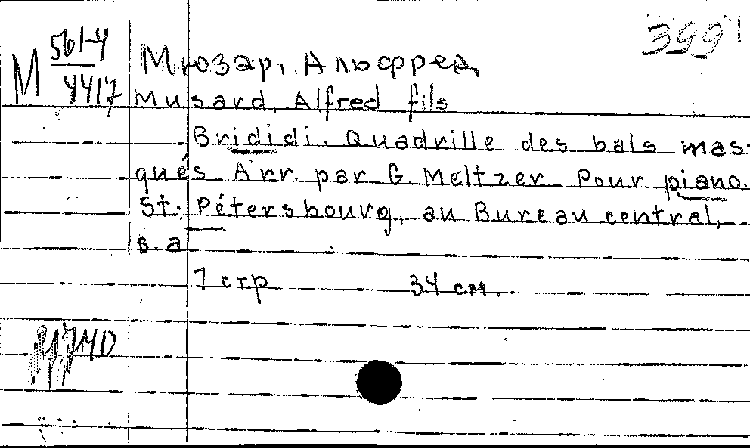 M 561-4
4417
399
Мюзар, Альфред,
Musard, Alfred fils
Brididi. Quadrille des bals mas-
qués Arr. par G. Meltzer Pour piano.
St. Pétersbourg, au Bureau central,
s.a
7 стр 34 см.